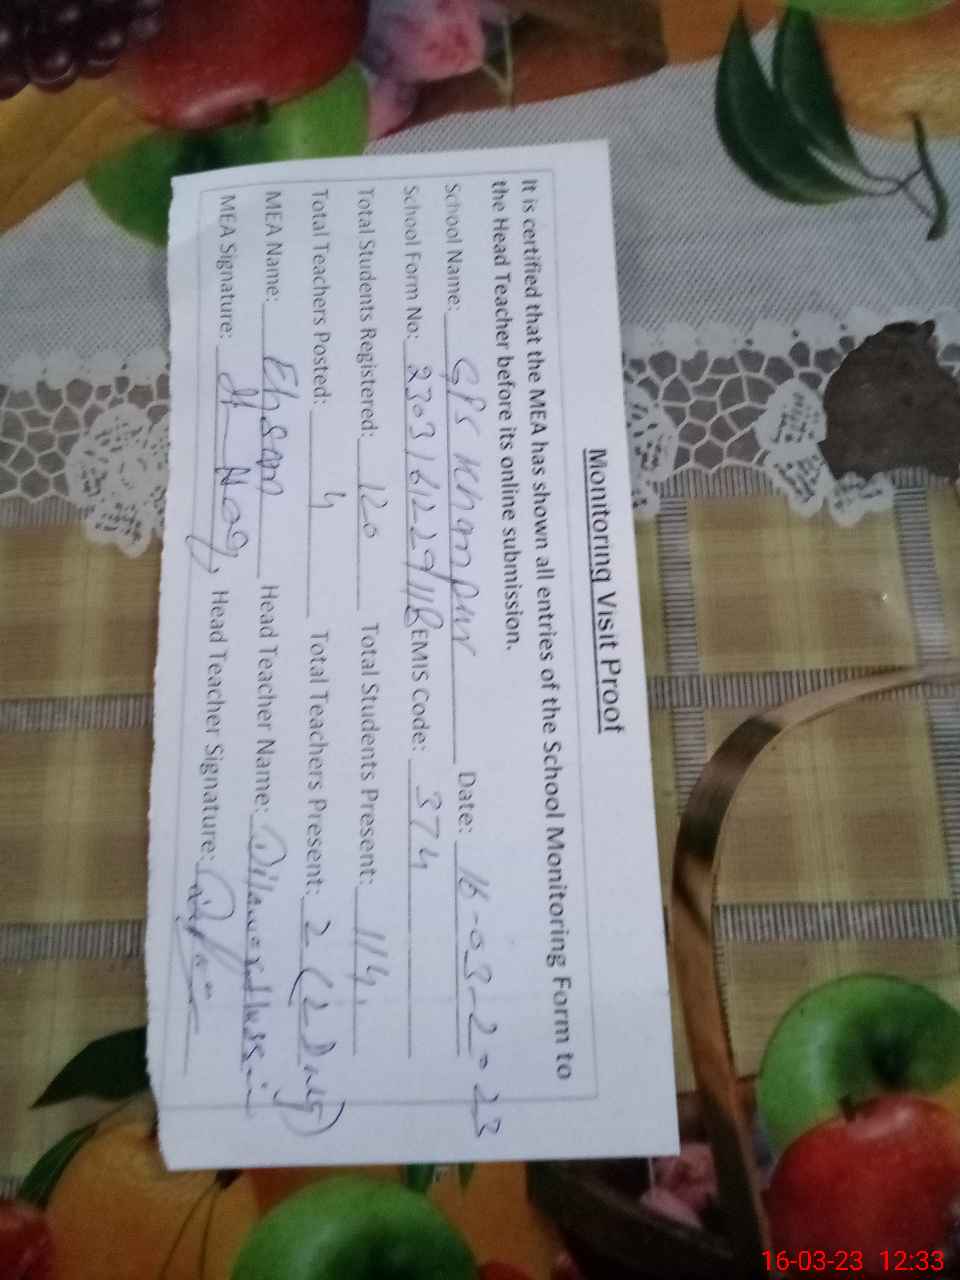 Monitoring Visit Proof
It is certified that the MEA has shown all entries of the School Monitoring Form to
the Head Teacher before its online submission.
School Name: GPS Khanpur Date: 16-03-2023
School Form No: EMIS Code: 374
Total Students Registered: 120 Total Students Present: 114
Total Teachers Posted: 4 Total Teachers Present: 2 (2 Duty)
MEA Name: Ehsan Head Teacher Name: Dilawar Hussain
MEA Signature: Head Teacher Signature:
16-03-23 12:33